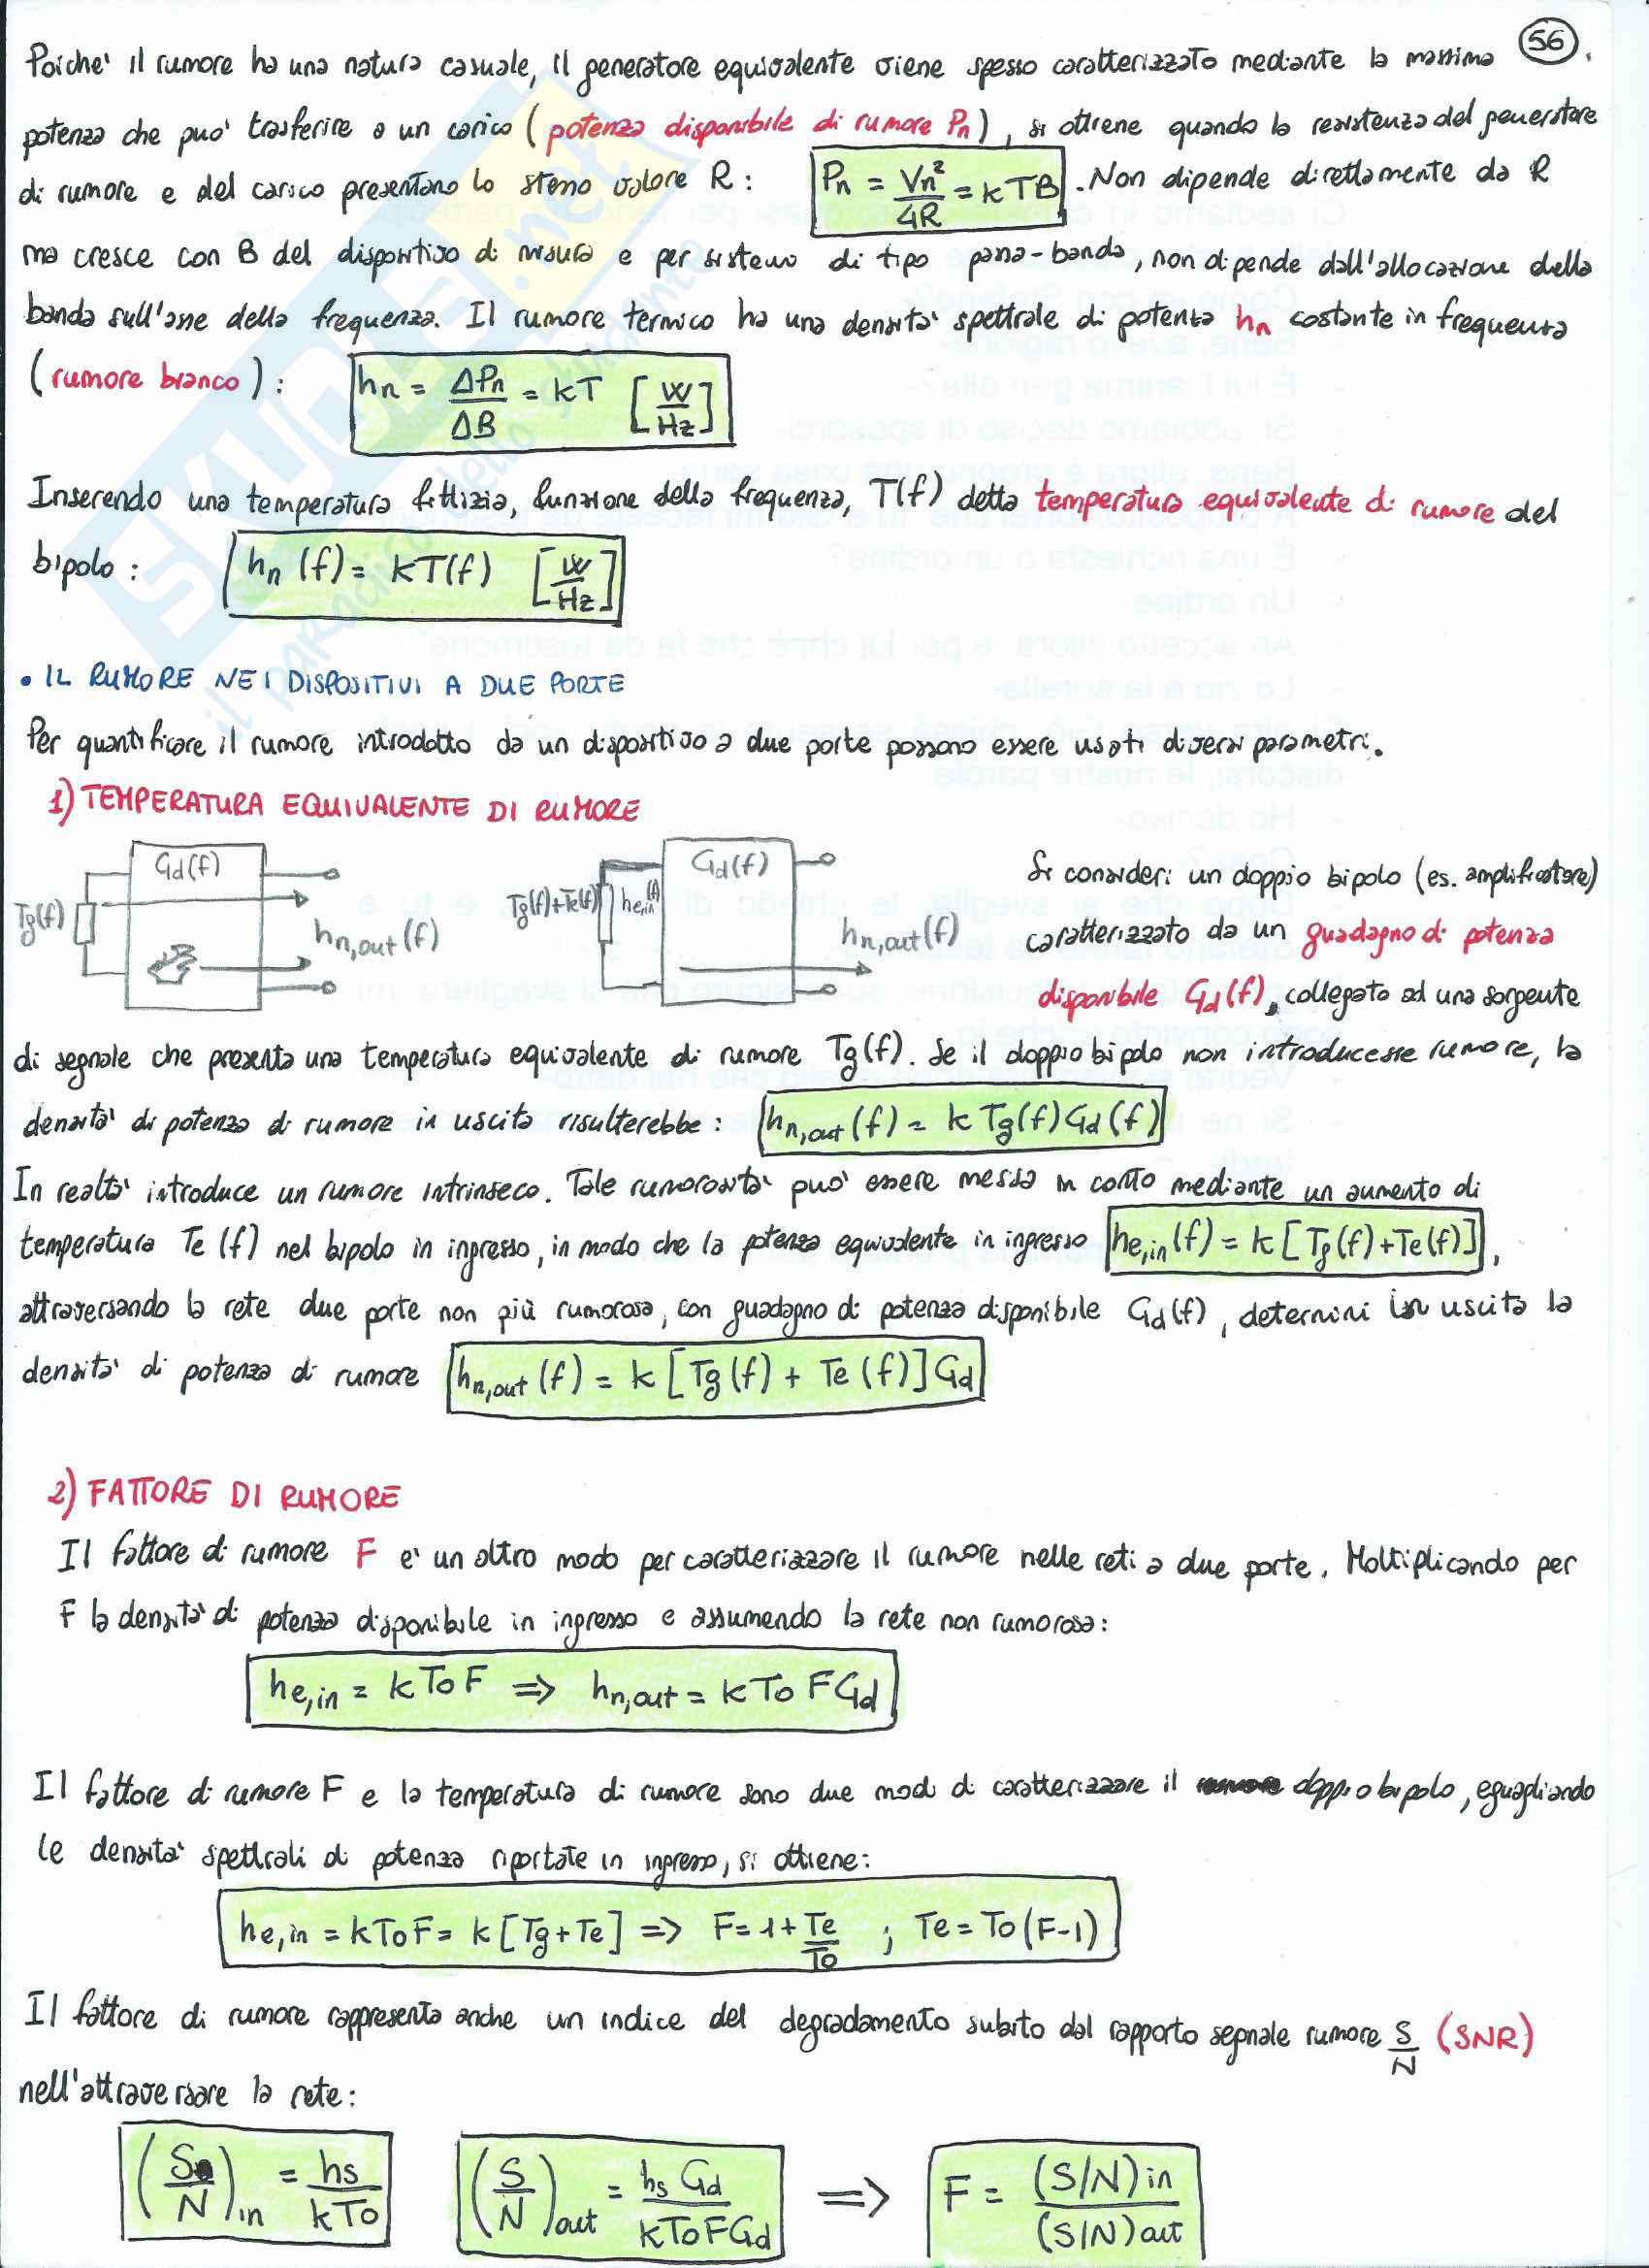 56
Poiche' il rumore ha una natura casuale, il generatore equivalente viene spesso caratterizzato mediante la massima
potenza che puo' trasferire a un carico (potenza disponibile di rumore Pn), si ottiene quando la resistenza del generatore
di rumore e del carico presentano lo stesso valore R: Pn = Vn²/4R = kTB. Non dipende direttamente da R
ma cresce con B del dispositivo di misura e per sistemi di tipo passa-banda, non dipende dall'allocazione della
banda sull'asse della frequenza. Il rumore termico ha una densita' spettrale di potenza hn costante in frequenza
(rumore bianco): hn = ΔPn/ΔB = kT [W/Hz]
Inserendo una temperatura fittizia, funzione della frequenza, T(f) detta temperatura equivalente di rumore del
bipolo: hn(f) = kT(f) [W/Hz]
• IL RUMORE NEI DISPOSITIVI A DUE PORTE
Per quantificare il rumore introdotto da un dispositivo a due porte possono essere usati diversi parametri.
1) TEMPERATURA EQUIVALENTE DI RUMORE
Gd(f)
Tg(f)
hn,out(f)
Gd(f)
Tg(f)+Te(f)
he,in(f)
hn,out(f)
Si consideri un doppio bipolo (es. amplificatore)
caratterizzato da un guadagno di potenza
disponibile Gd(f), collegato ad una sorgente
di segnale che presenta una temperatura equivalente di rumore Tg(f). Se il doppio bipolo non introducesse rumore, la
densita' di potenza di rumore in uscita risulterebbe: hn,out(f) = kTg(f)Gd(f)
In realta' introduce un rumore intrinseco. Tale rumorosita' puo' essere messa in conto mediante un aumento di
temperatura Te(f) nel bipolo in ingresso, in modo che la potenza equivalente in ingresso he,in(f) = k[Tg(f)+Te(f)],
attraversando la rete due porte non più rumorosa, con guadagno di potenza disponibile Gd(f), determini in uscita la
densita' di potenza di rumore hn,out(f) = k[Tg(f) + Te(f)]Gd
2) FATTORE DI RUMORE
Il fattore di rumore F e' un altro modo per caratterizzare il rumore nelle reti a due porte. Moltiplicando per
F la densita' di potenza disponibile in ingresso e assumendo la rete non rumorosa:
he,in = kToF => hn,out = kToFGd
Il fattore di rumore F e la temperatura di rumore sono due modi di caratterizzare il doppio bipolo, eguagliando
le densita' spettrali di potenza riportate in ingresso, si ottiene:
he,in = kToF = k[Tg+Te] => F = 1+Te/To ; Te = To(F-1)
Il fattore di rumore rappresenta anche un indice del degradamento subito dal rapporto segnale rumore S/N (SNR)
nell'attraversare la rete:
(S/N)in = hs/kTo (S/N)out = hsGd/kToFGd => F = (S/N)in/(S/N)out